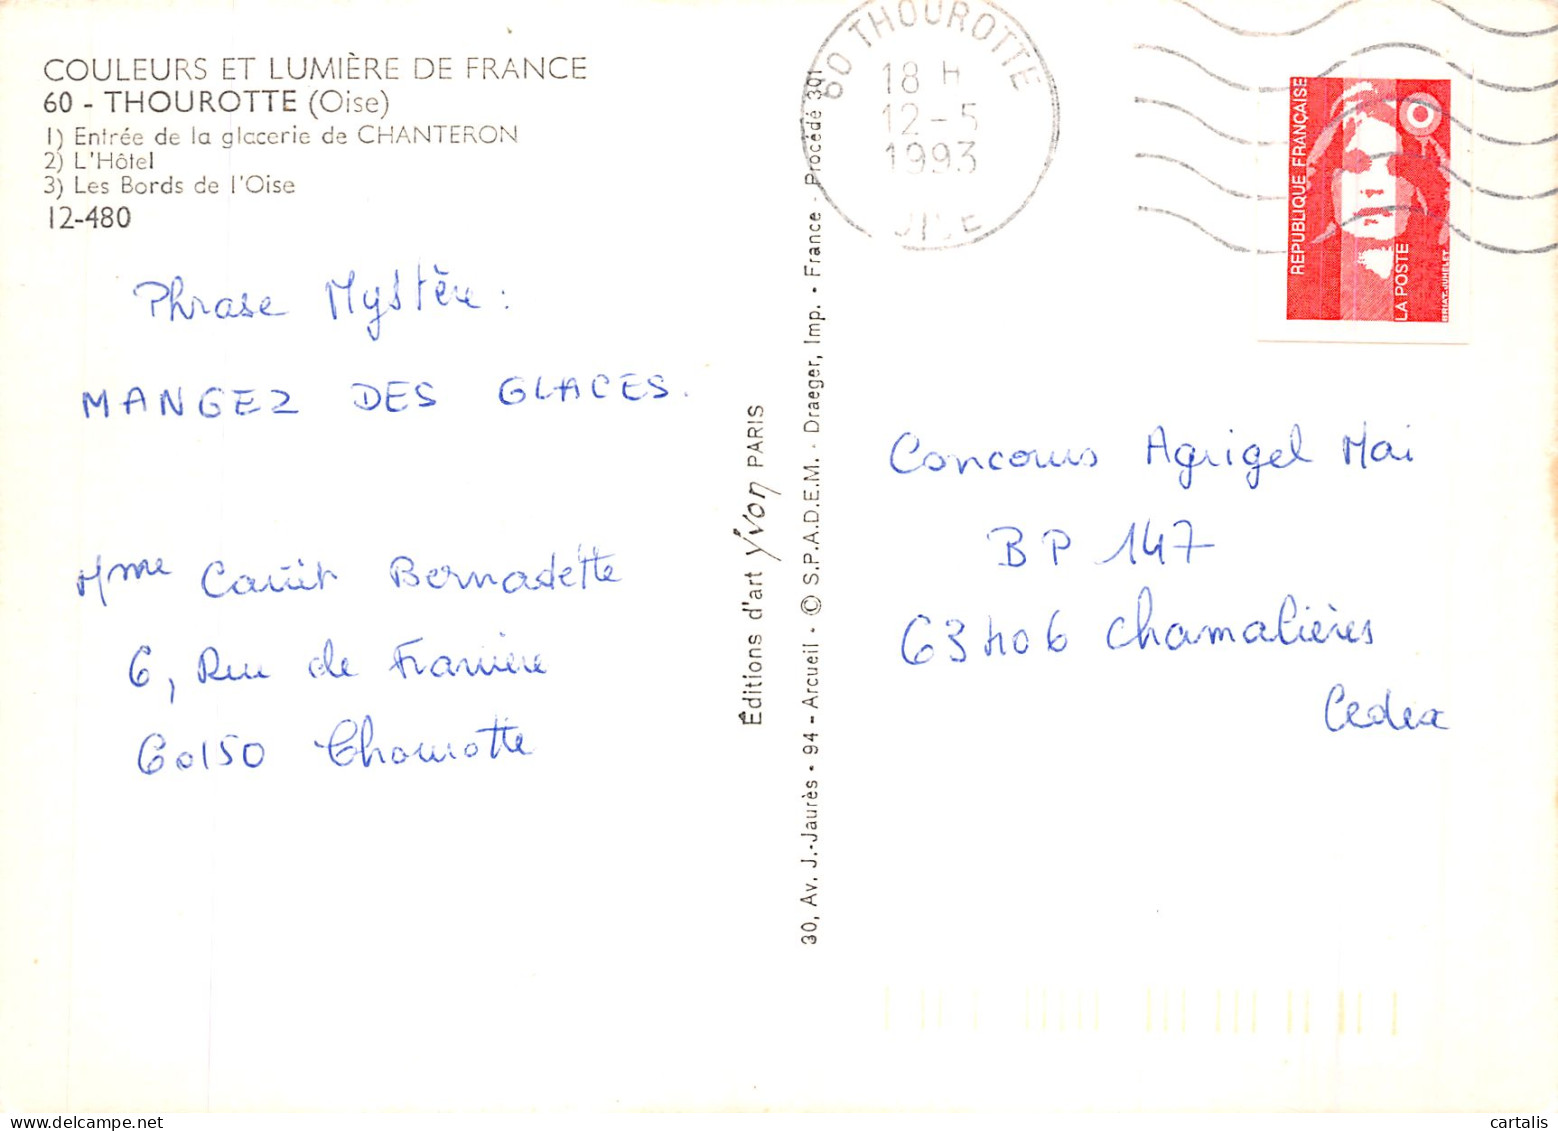 COULEURS ET LUMIÈRE DE FRANCE
60 - THOUROTTE (Oise)
1) Entrée de la glacerie de CHANTERON
2) L'Hôtel
3) Les Bords de l'Oise
12-480
Phrase Mystère :
MANGEZ DES GLACES.
Mme Bernadette
6, Rue de
60150 Thourotte
Éditions d'art yvon PARIS
30, Av. J.-Jaurès - 94 - Arcueil - © S.P.A.D.E.M. - Draeger, Imp. - France - Procédé 301
60 THOUROTTE
18 H
12-5
1993
OISE
REPUBLIQUE FRANÇAISE
LA POSTE
BRIAT-JUMELET
Concours Agrigel Mai
BP 147
63406 Chamalières
Cedex
cartalis